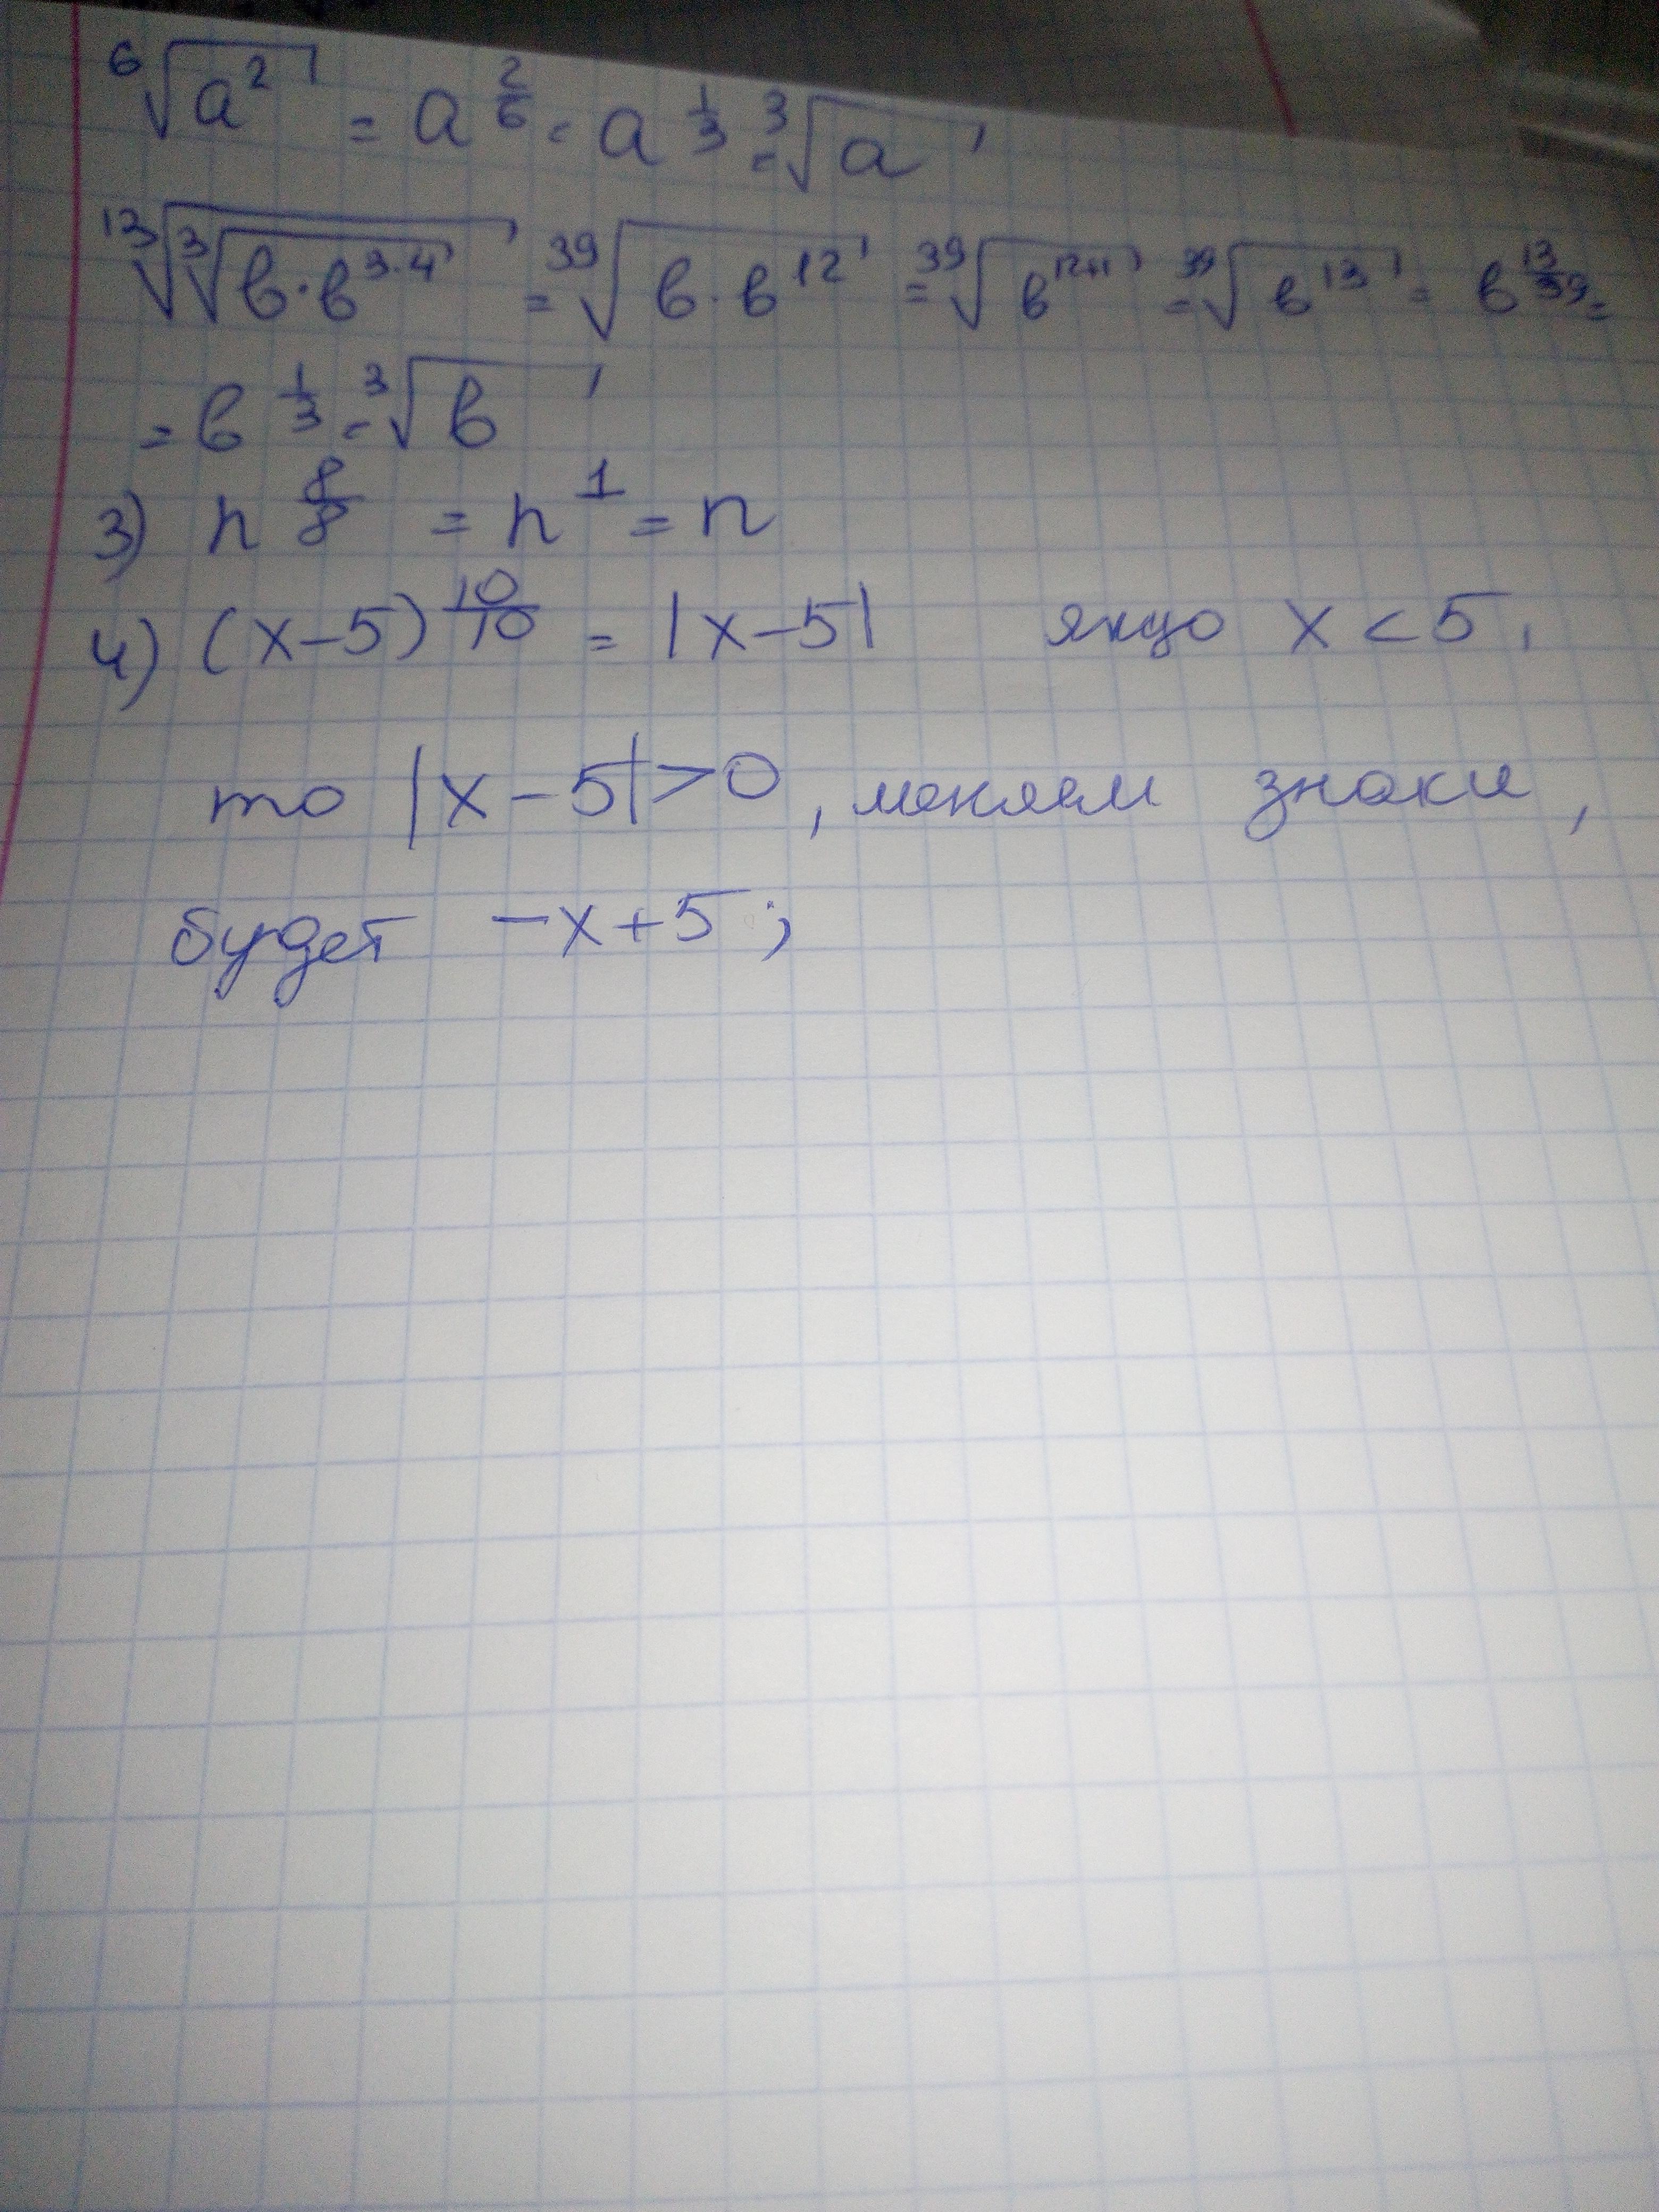 ⁶√a² = a^(2/6) = a^(1/3) = ³√a
¹³√(³√(в·в^(3·4))) = ³⁹√(в·в¹²) = ³⁹√(в^(12+1)) = ³⁹√(в¹³) = в^(13/39) =
= в^(1/3) = ³√в
3) n^(8/8) = n¹ = n
4) (x-5)^(10/10) = |x-5| якщо x<5,
то |x-5|>0, меняем знаки,
будет -x+5;